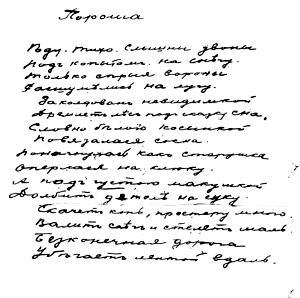 Пороша
Еду. Тихо. Слышны звоны
Под копытом на снегу.
Только серыя вороны
Расшумелись на лугу.
Заколдован невидимкой
Дремлет лес под сказку сна,
Словно белою косынкой
Повязалася сосна.
Понагнулась как старушка
Оперлася на клюку
А под самою макушкой
Долбит дятел на суку.
Скачет конь, простору много.
Валит снег и стелет шаль.
Безконечная дорога
Убегает лентой вдаль.